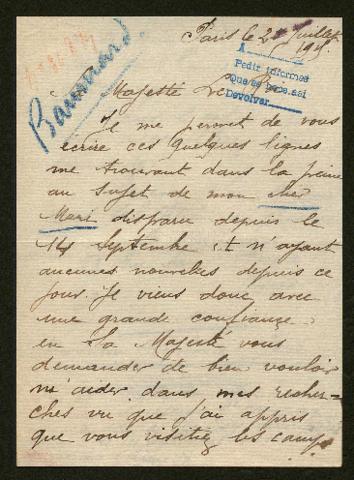 Paris le 2 Juillet
1915
A
Pedir informes
Que se hace así
Devolver
Baurnard
Majesté Le Roi
Je me permet de vous
écrire ces quelques lignes
me trouvant dans la peine
au sujet de mon cher
Mari disparu depuis le
14 Septembre et n'ayant
aucunes nouvelles depuis ce
jour. Je viens donc avec
une grande confiance
en Sa Majesté vous
demander de bien vouloir
m'aider dans mes recher=
ches vu que j'ai appris
que vous visitiez les camps